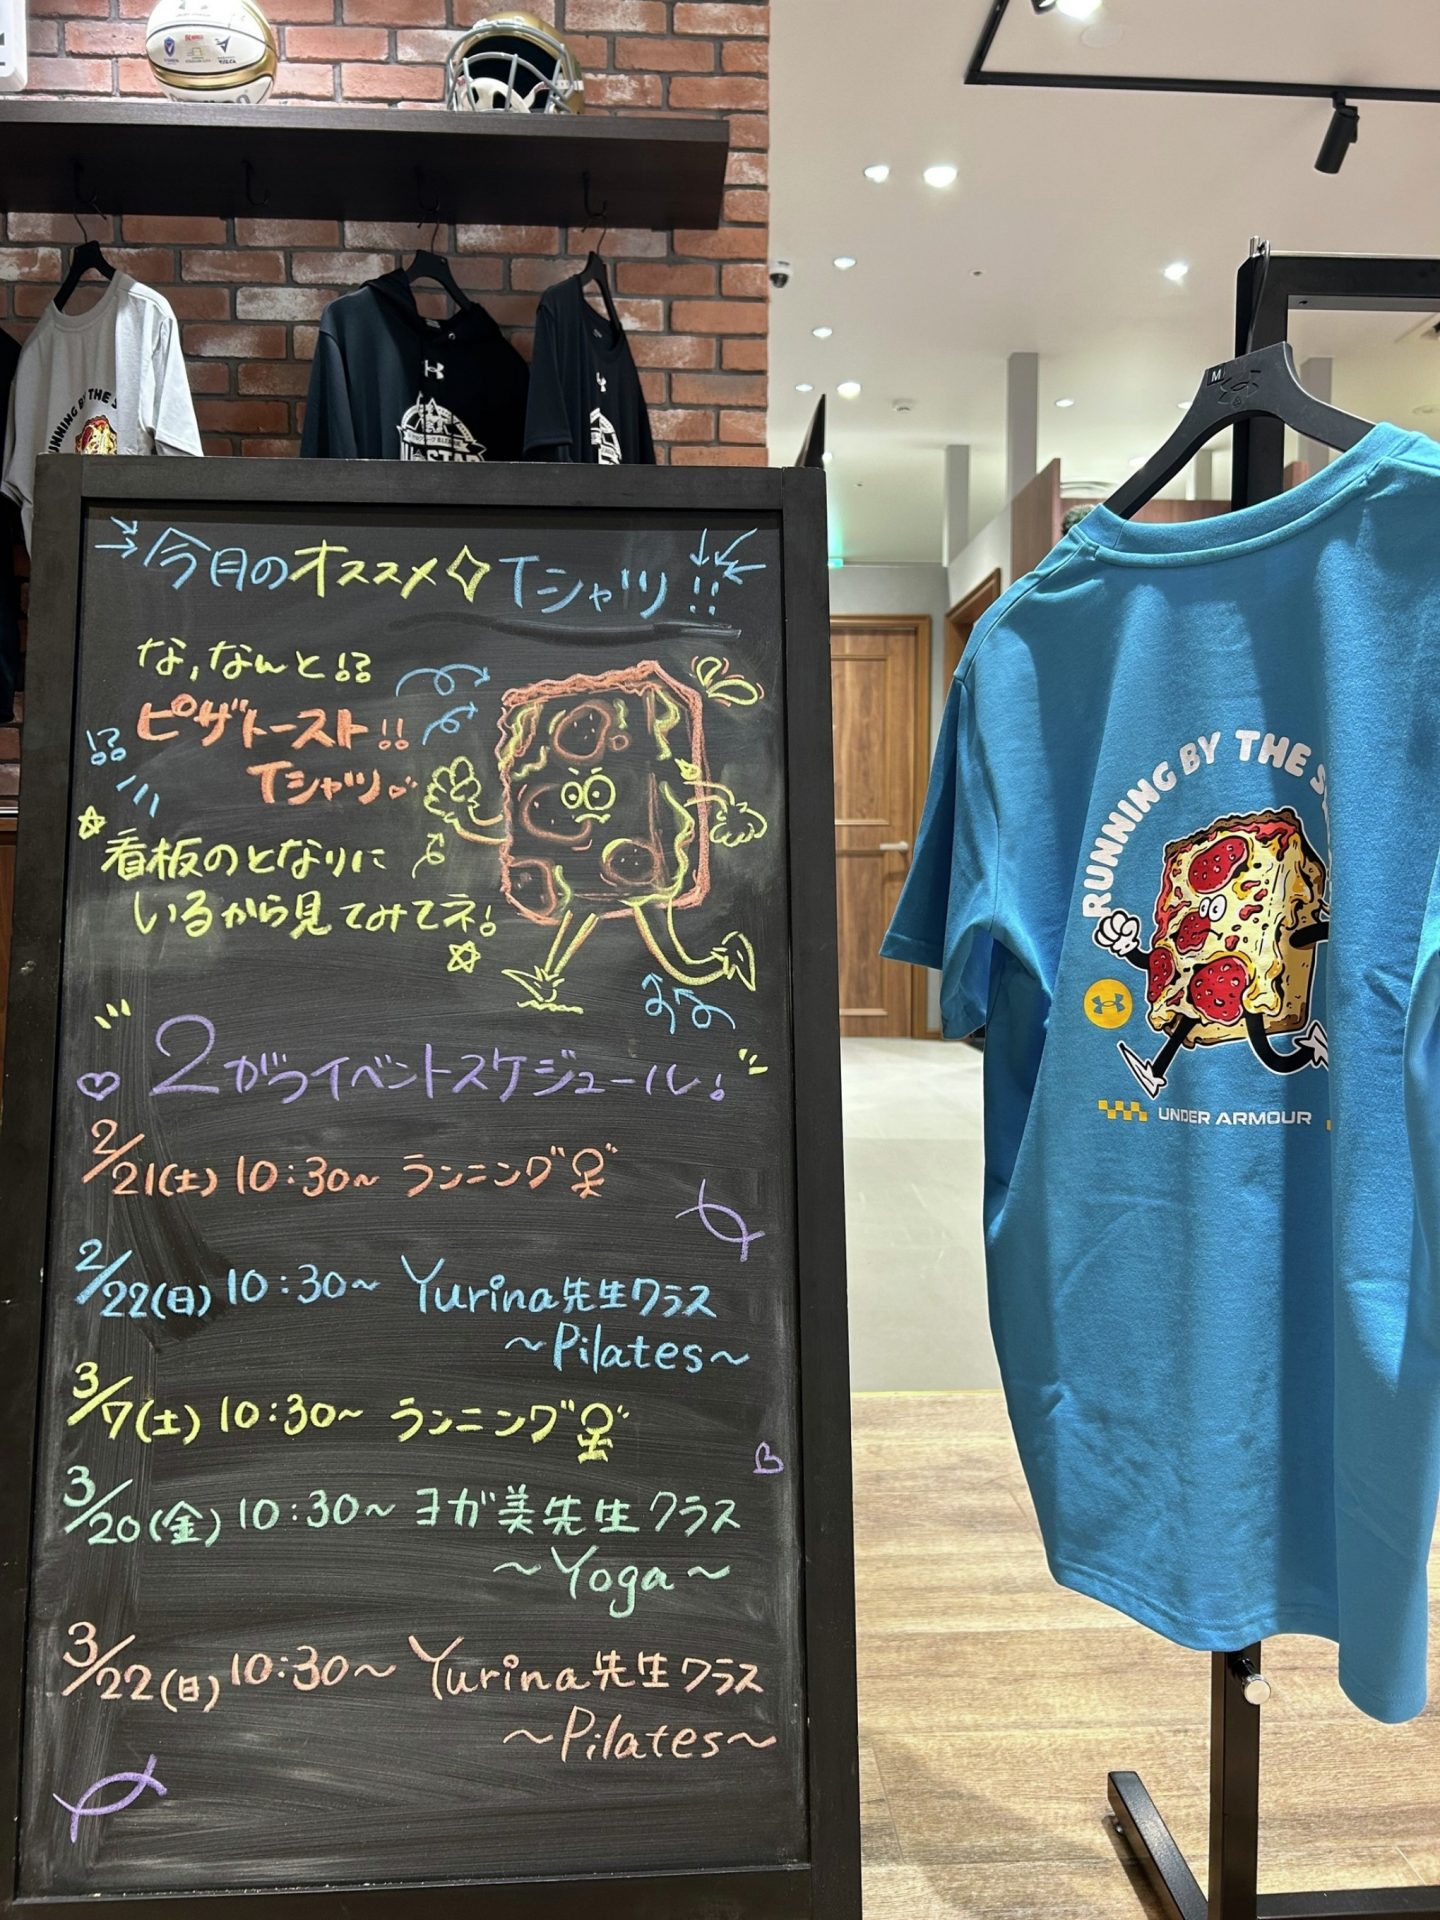 RUNNING BY THE S
今月のオススメ✧Tシャツ!!
な,なんと!?
ピザトースト!!
Tシャツ♡
!?
看板のとなりに
いるから見てみてネ!
2がつイベントスケジュール!
2/21(土) 10:30~ ランニング
2/22(日) 10:30~ Yurina先生クラス
~Pilates~
3/7(土) 10:30~ ランニング
3/20(金) 10:30~ ヨガ美先生クラス
~Yoga~
3/22(日) 10:30~ Yurina先生クラス
~Pilates~
M
RUNNING BY THE S
UNDER ARMOUR